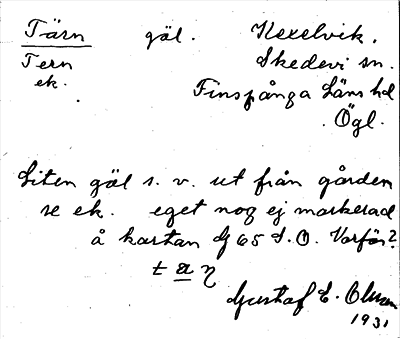 Tärn gäl. Kexelvik.
Tern Skedevi sn.
ek. Finspånga Läns hd
Ögl.
Liten gäl s. v. ut från gården
se ek. eget nog ej markerad
å kartan G 65 S.O. Varför?
t a η
Gustaf E. Olsson
1931